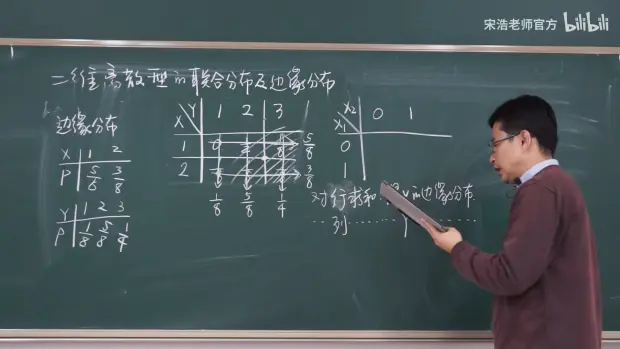 宋浩老师官方 bilibili
二维离散型的联合分布及边缘分布
边缘分布
X 1 2
P 5/8 3/8
Y 1 2 3
P 1/8 5/8 1/4
X Y 1 2 3
1 0 5/8
2 3/8
1/8 5/8 1/4
X1 X2 0 1
0
1
对行求和 的边缘分布
列